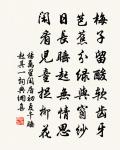 梅子留酸軟齒牙
芭蕉分綠與窗紗
日長睡起無情思
閑看兒童捉柳花
楊萬里閑居初夏午睡
起其一詞典網書